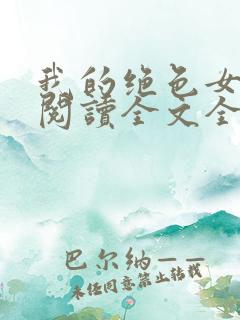 我的绝色女
阅讀全文全
巴尔纳——
未经同意禁止转载